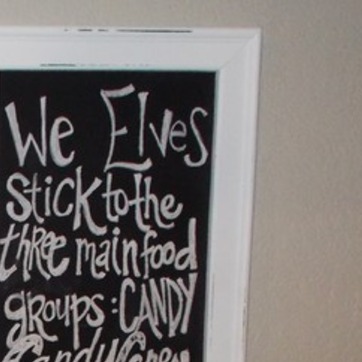 We Elves
Stick to the
three main food
groups: CANDY
Candy Canes